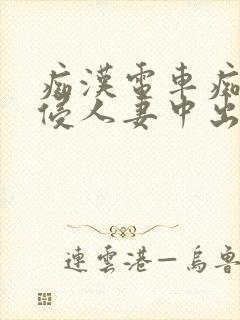 痴漢電車痴
侵人妻中出
連雲港—烏魯